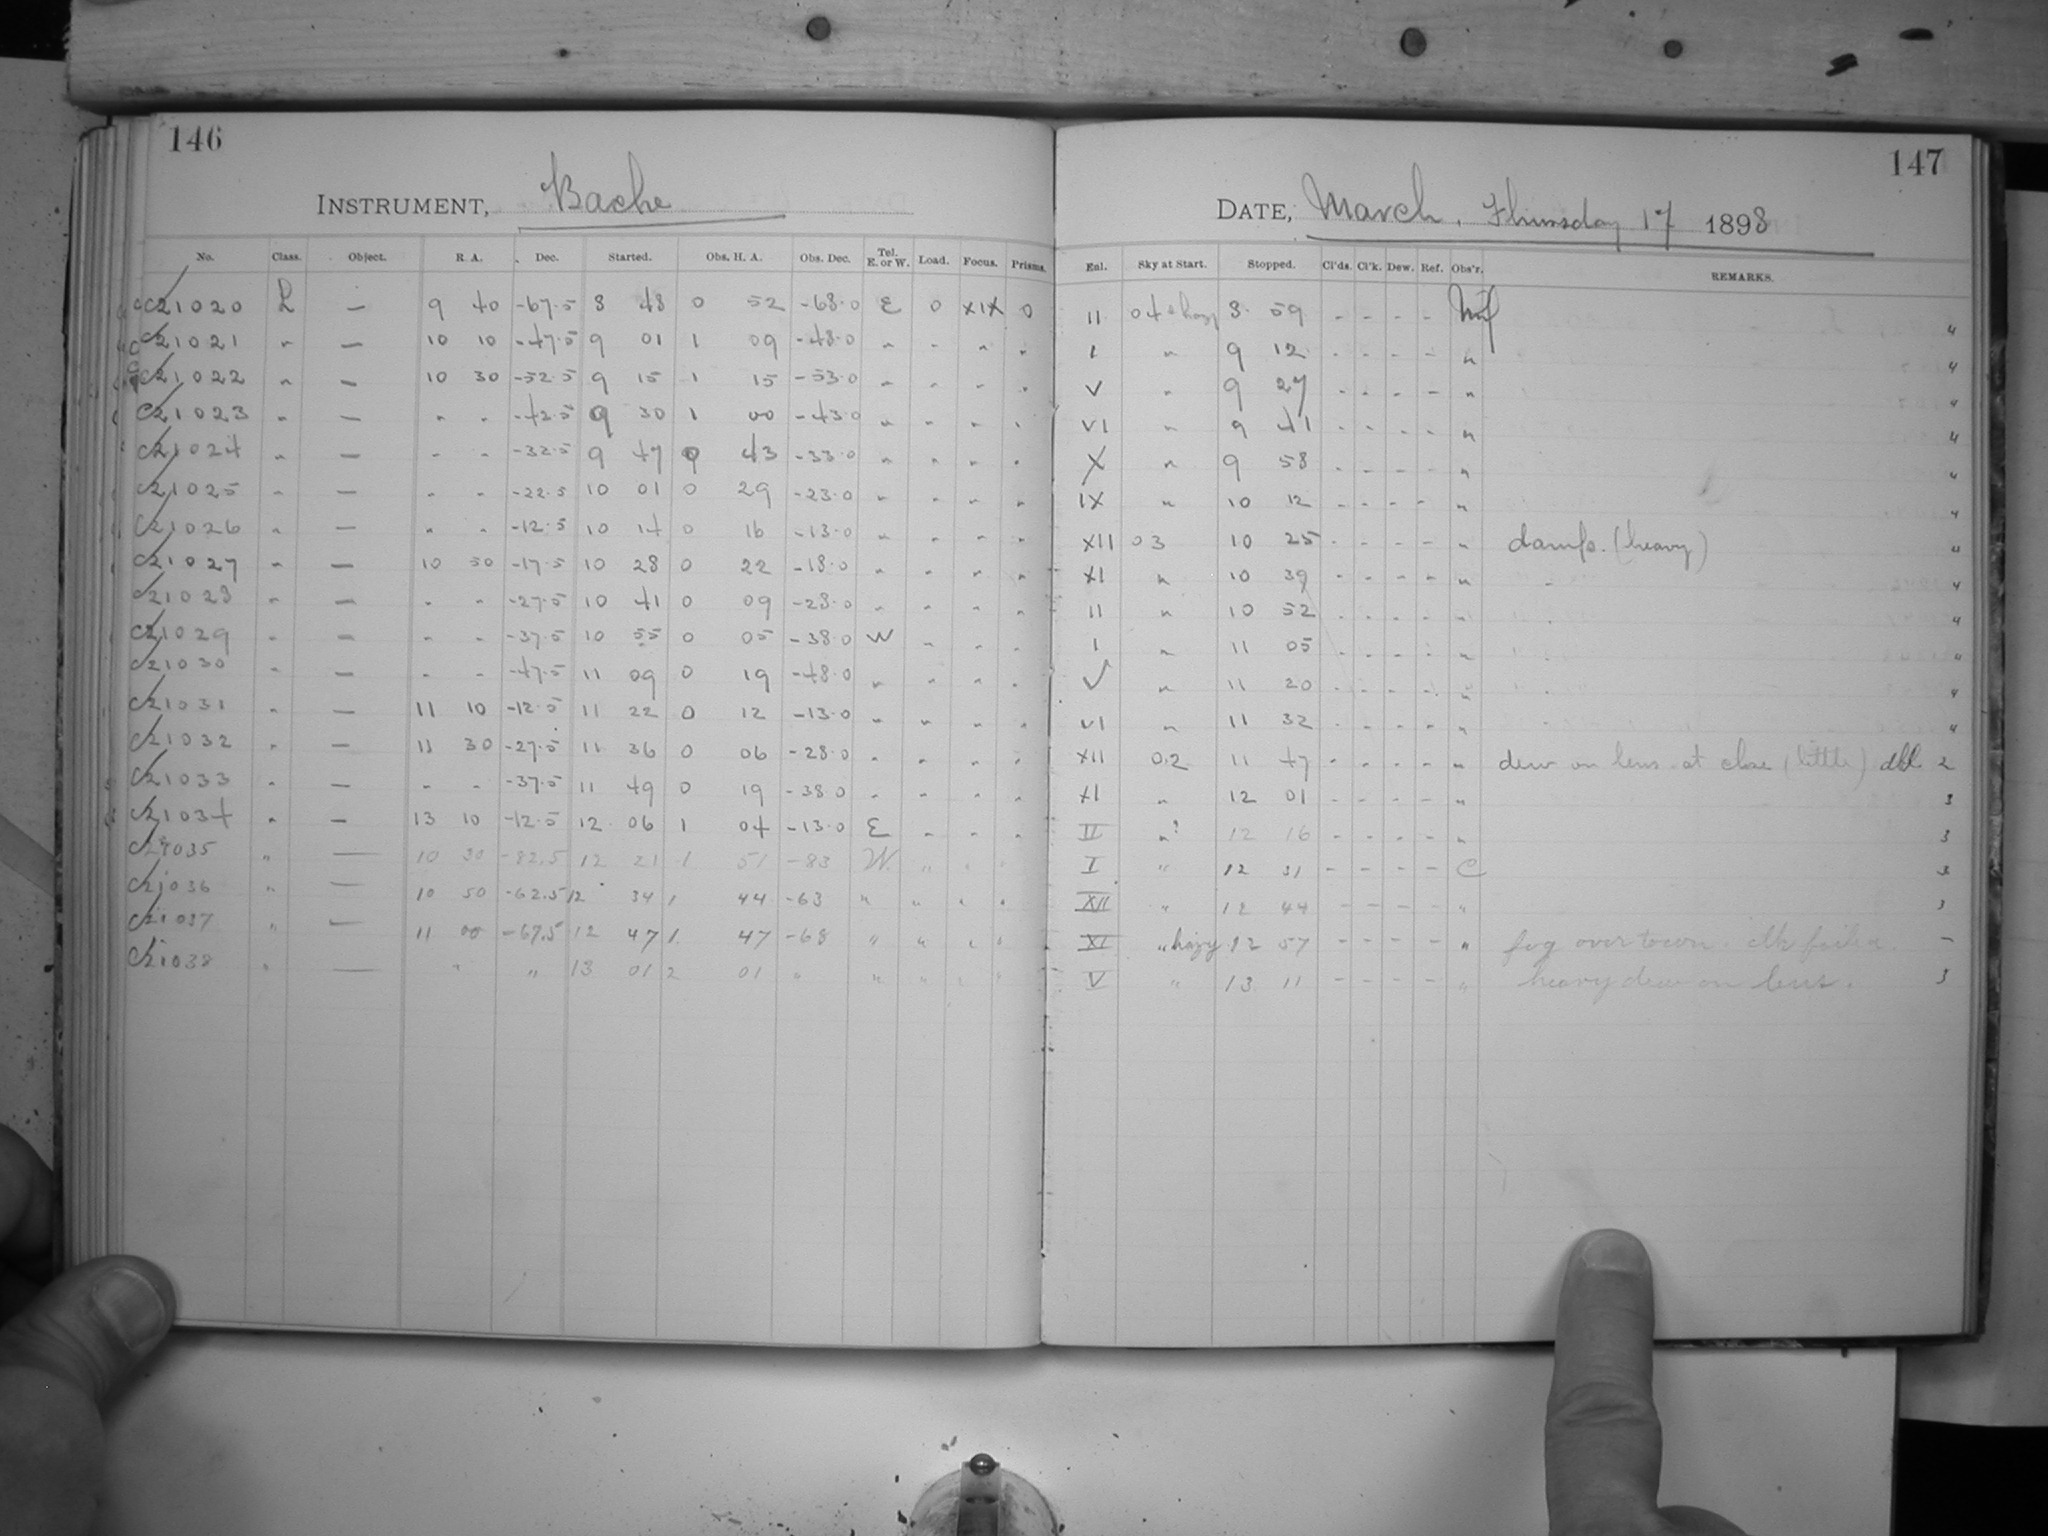 146
INSTRUMENT, Bache
No. Class. Object. R. A. Dec. Started. Obs. H. A. Obs. Dec. Tel. E. or W. Load. Focus. Prisms.
21020 L — 9 40 -67.5 8 48 0 52 -68.0 E 0 XIX 0
21021 " — 10 10 -47.5 9 01 1 09 -48.0 " " " "
21022 " — 10 30 -52.5 9 15 1 15 -53.0 " " " "
21023 " — " " -42.5 9 30 1 00 -43.0 " " " "
21024 " — " " -32.5 9 47 0 43 -33.0 " " " "
21025 " — " " -22.5 10 01 0 29 -23.0 " " " "
21026 " — " " -12.5 10 14 0 16 -13.0 " " " "
21027 " — 10 50 -17.5 10 28 0 22 -18.0 " " " "
21028 " — " " -27.5 10 41 0 09 -28.0 " " " "
21029 " — " " -37.5 10 55 0 05 -38.0 W " " "
21030 " — " " -47.5 11 09 0 19 -48.0 " " " "
21031 " — 11 10 -12.5 11 22 0 12 -13.0 " " " "
21032 " — 11 30 -27.5 11 36 0 06 -28.0 " " " "
21033 " — " " -37.5 11 49 0 19 -38.0 " " " "
21034 " — 13 10 -12.5 12 06 1 04 -13.0 E " " "
21035 " — 10 30 -82.5 12 21 1 51 -83 W " " "
21036 " — 10 50 -62.5 12 34 1 44 -63 " " " "
21037 " — 11 00 -67.5 12 47 1 47 -68 " " " "
21038 " — " " 13 01 2 01 " " " " "
147
DATE, March, Thursday 17 1898
Enl. Sky at Start. Stopped. Cl'ds. Cl'k. Dew. Ref. Obs'r. REMARKS.
II 04 hazy 8 59 - - - - 4
I " 9 12 - - - - " 4
V " 9 27 - - - - " 4
VI " 9 41 - - - - " 4
X " 9 58 - - - - " 4
IX " 10 12 - - - - " 4
XII 03 10 25 - - - - " damp. (heavy) 4
XI " 10 39 - - - - " " 4
II " 10 52 - - - - " 4
I " 11 05 - - - - " 4
V " 11 20 - - - - " 4
VI " 11 32 - - - - " 4
XII 0.2 11 47 - - - - " dew on lens at close (little) dbl 2
XI " 12 01 - - - - " 3
II "? 12 16 - - - - " 3
I " 12 31 - - - - C 3
XII " 12 44 - - - - " 3
XI " hazy 12 57 - - - - " fog over town. —
V " 13 11 - - - - " heavy dew on lens. 3